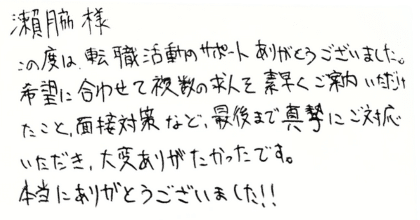 瀬脇 様
この度は、転職活動のサポートありがとうございました。
希望に合わせて複数の求人を素早くご案内いただけ
たこと、面接対策など、最後まで真摯にご対応
いただき、大変ありがたかったです。
本当にありがとうございました!!